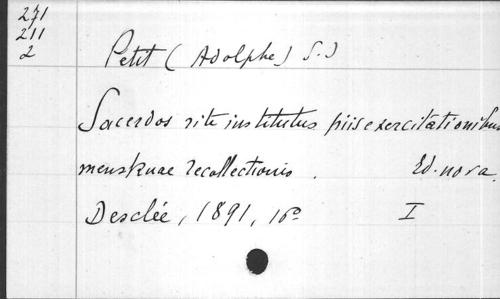 271
211
2
Petit (Adolphe) S.J
Sacerdos rite institutus piis exercitationibus
menstruae recollectionis.  Ed. nova.
Desclée, 1891, 16º  I